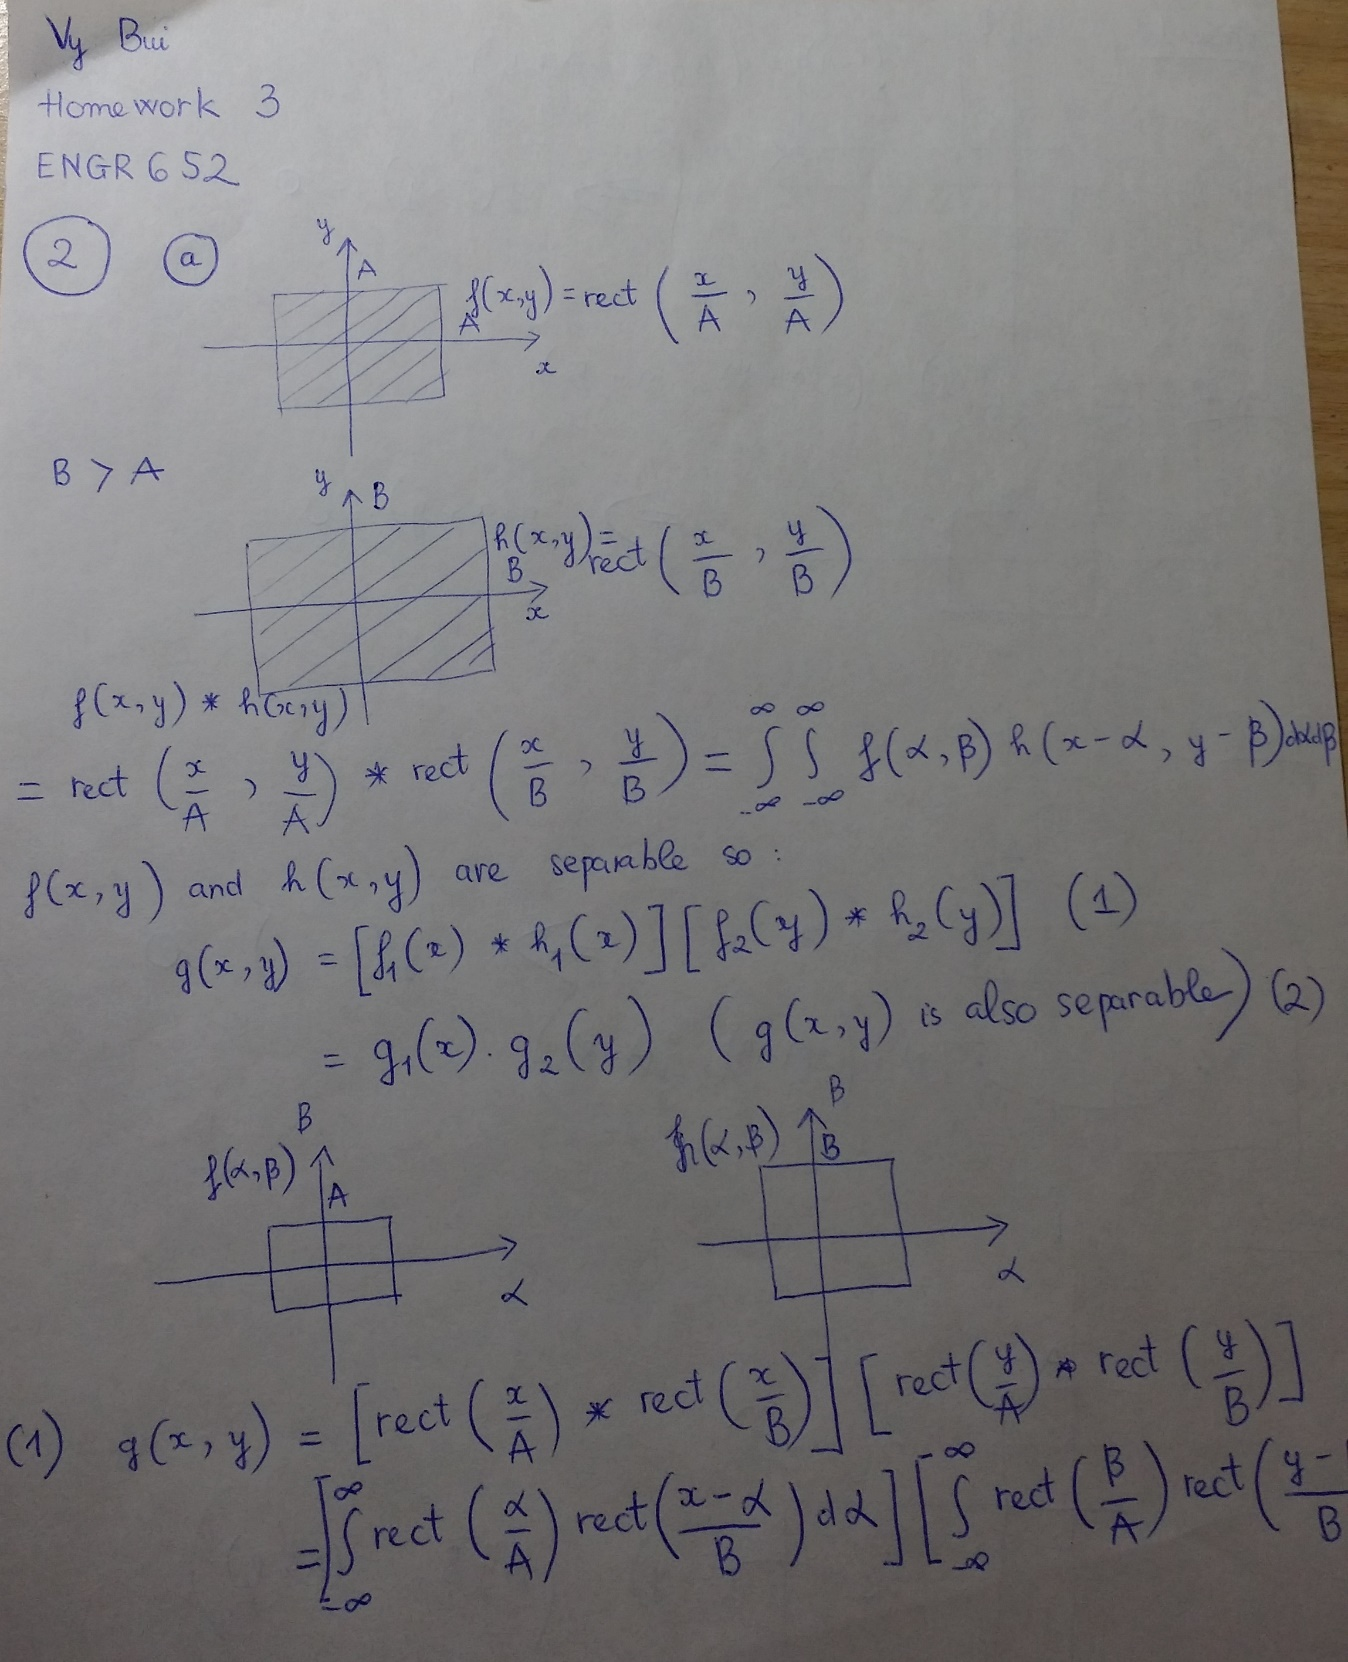 Vy Bui
Homework 3
ENGR 652
2 a
y
A
f(x,y) = rect (x/A , y/A)
A
x
B > A
y B
h(x,y) = rect (x/B , y/B)
B
x
f(x,y) * h(x,y)
= rect (x/A , y/A) * rect (x/B , y/B) = ∫_{-∞}^{∞} ∫_{-∞}^{∞} f(α,β) h(x-α, y-β) dαdβ
f(x,y) and h(x,y) are separable so :
g(x,y) = [f₁(x) * h₁(x)] [f₂(y) * h₂(y)] (1)
= g₁(x) . g₂(y) (g(x,y) is also separable) (2)
β
f(α,β)
A
α
β
h(α,β)
B
α
(1) g(x,y) = [rect (x/A) * rect (x/B)] [rect (y/A) * rect (y/B)]
= [∫_{-∞}^{∞} rect (α/A) rect (x-α/B) dα] [∫_{-∞}^{-∞} rect (β/A) rect (y-/B